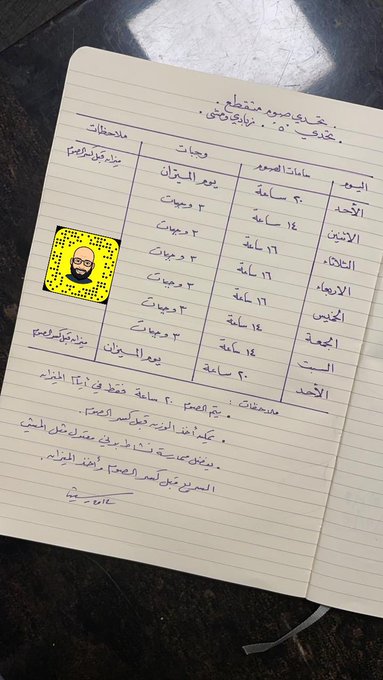 تحدي صوم متقطع .
تحدي ٥٠ . زبادي ومشى .
اليوم ساعات الصوم وجبات ملاحظات
الأحد ٢٠ ساعة يوم الميزان ميزانه قبل كسر الصوم
الاثنين ١٤ ساعة ٣ وجبات
الثلاثاء ١٦ ساعة ٣ وجبات
الاربعاء ١٦ ساعة ٣ وجبات
الخميس ١٦ ساعة ٣ وجبات
الجمعة ١٤ ساعة ٣ وجبات
السبت ١٤ ساعة ٣ وجبات
الأحد ٢٠ ساعة يوم الميزان ميزانه قبل كسر الصوم
ملاحظات :
. يتم الصوم ٢٠ ساعة فقط في أيام الميزانه
. يمكنه أخذ الوزن قبل كسر الصوم .
. يفضل ممارسة نشاط بدني معقول مثل المشي
السريع قبل كسر الصوم وأخذ الميزانه .